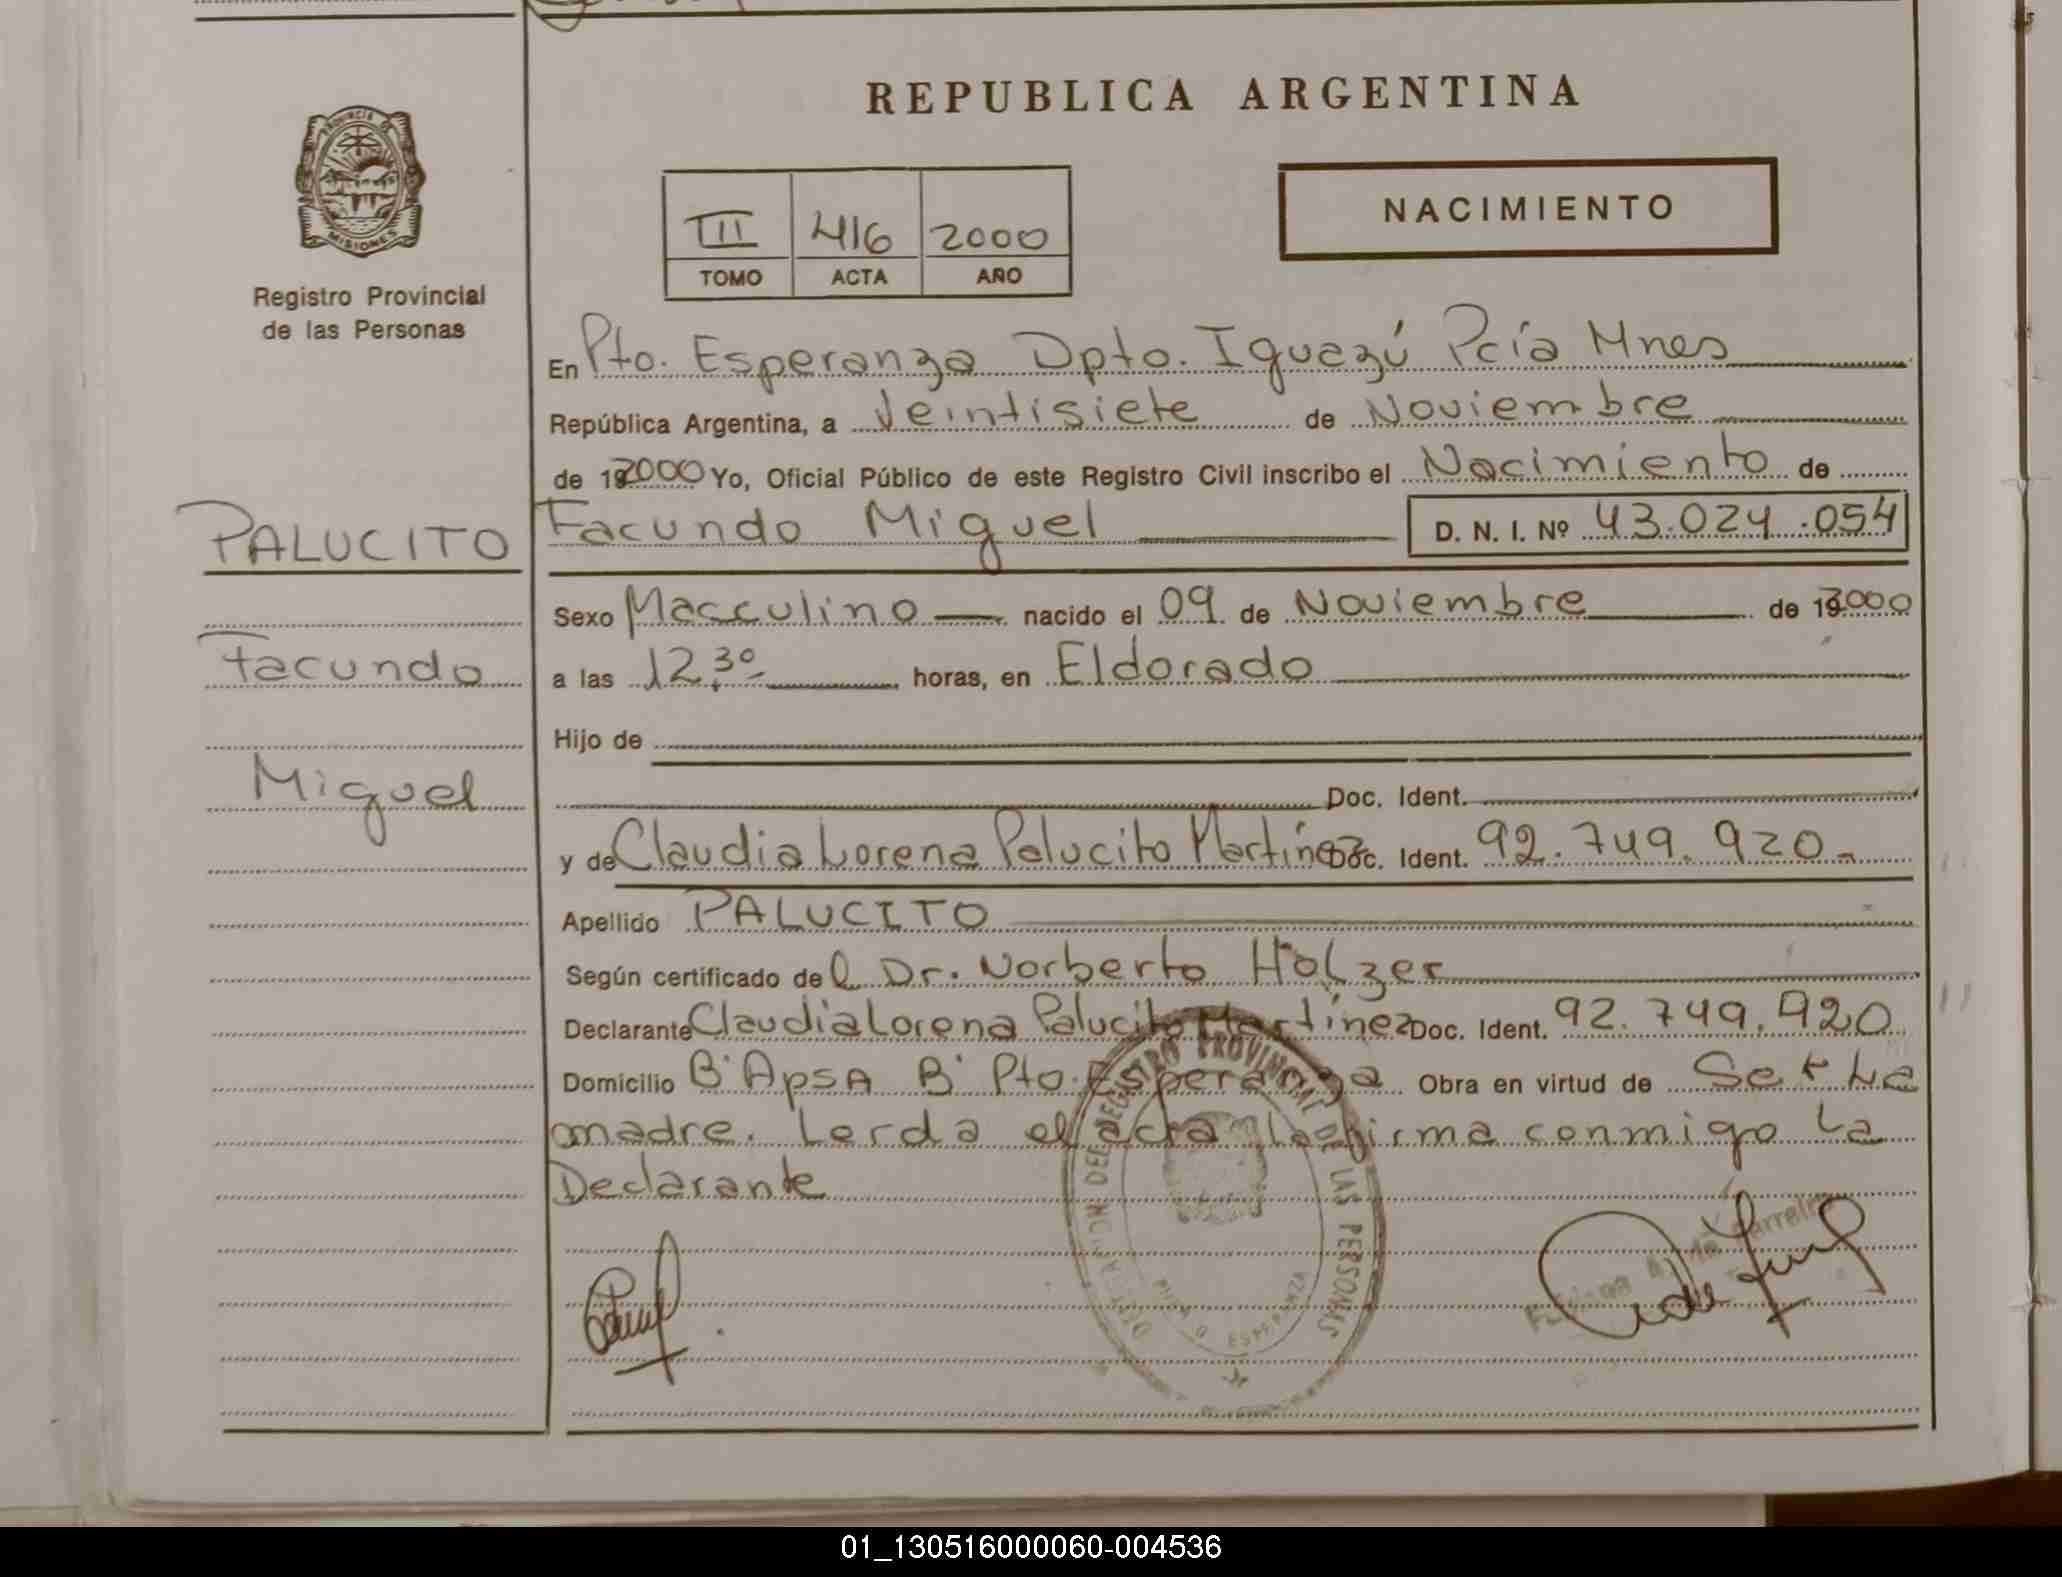 REPUBLICA ARGENTINA
PROVINCIA DE
MISIONES
Registro Provincial
de las Personas
III 416 2000
TOMO ACTA AÑO
NACIMIENTO
En Pto. Esperanza Dpto. Iguazú Pcía Mnes
República Argentina, a Veintisiete de Noviembre
de 192000 Yo, Oficial Público de este Registro Civil inscribo el Nacimiento de
PALUCITO
Facundo Miguel D. N. I. Nº 43.024.054
Sexo Masculino nacido el 09 de Noviembre de 192000
Facundo
a las 12.30 horas, en Eldorado
Hijo de
Miguel
Doc. Ident.
y de Claudia Lorena Palucito Martínez Doc. Ident. 92.749.920.-
Apellido PALUCITO
Según certificado del Dr. Norberto Holzer
Declarante Claudia Lorena Palucito Martínez Doc. Ident. 92.749.920
Domicilio Bº Apsa Bº Pto. Esperanza Obra en virtud de Ser La
madre. Leída el acta la firma conmigo La
Declarante
DEL REGISTRO PROVINCIAL DE LAS PERSONAS
ESPERANZA
01_130516000060-004536